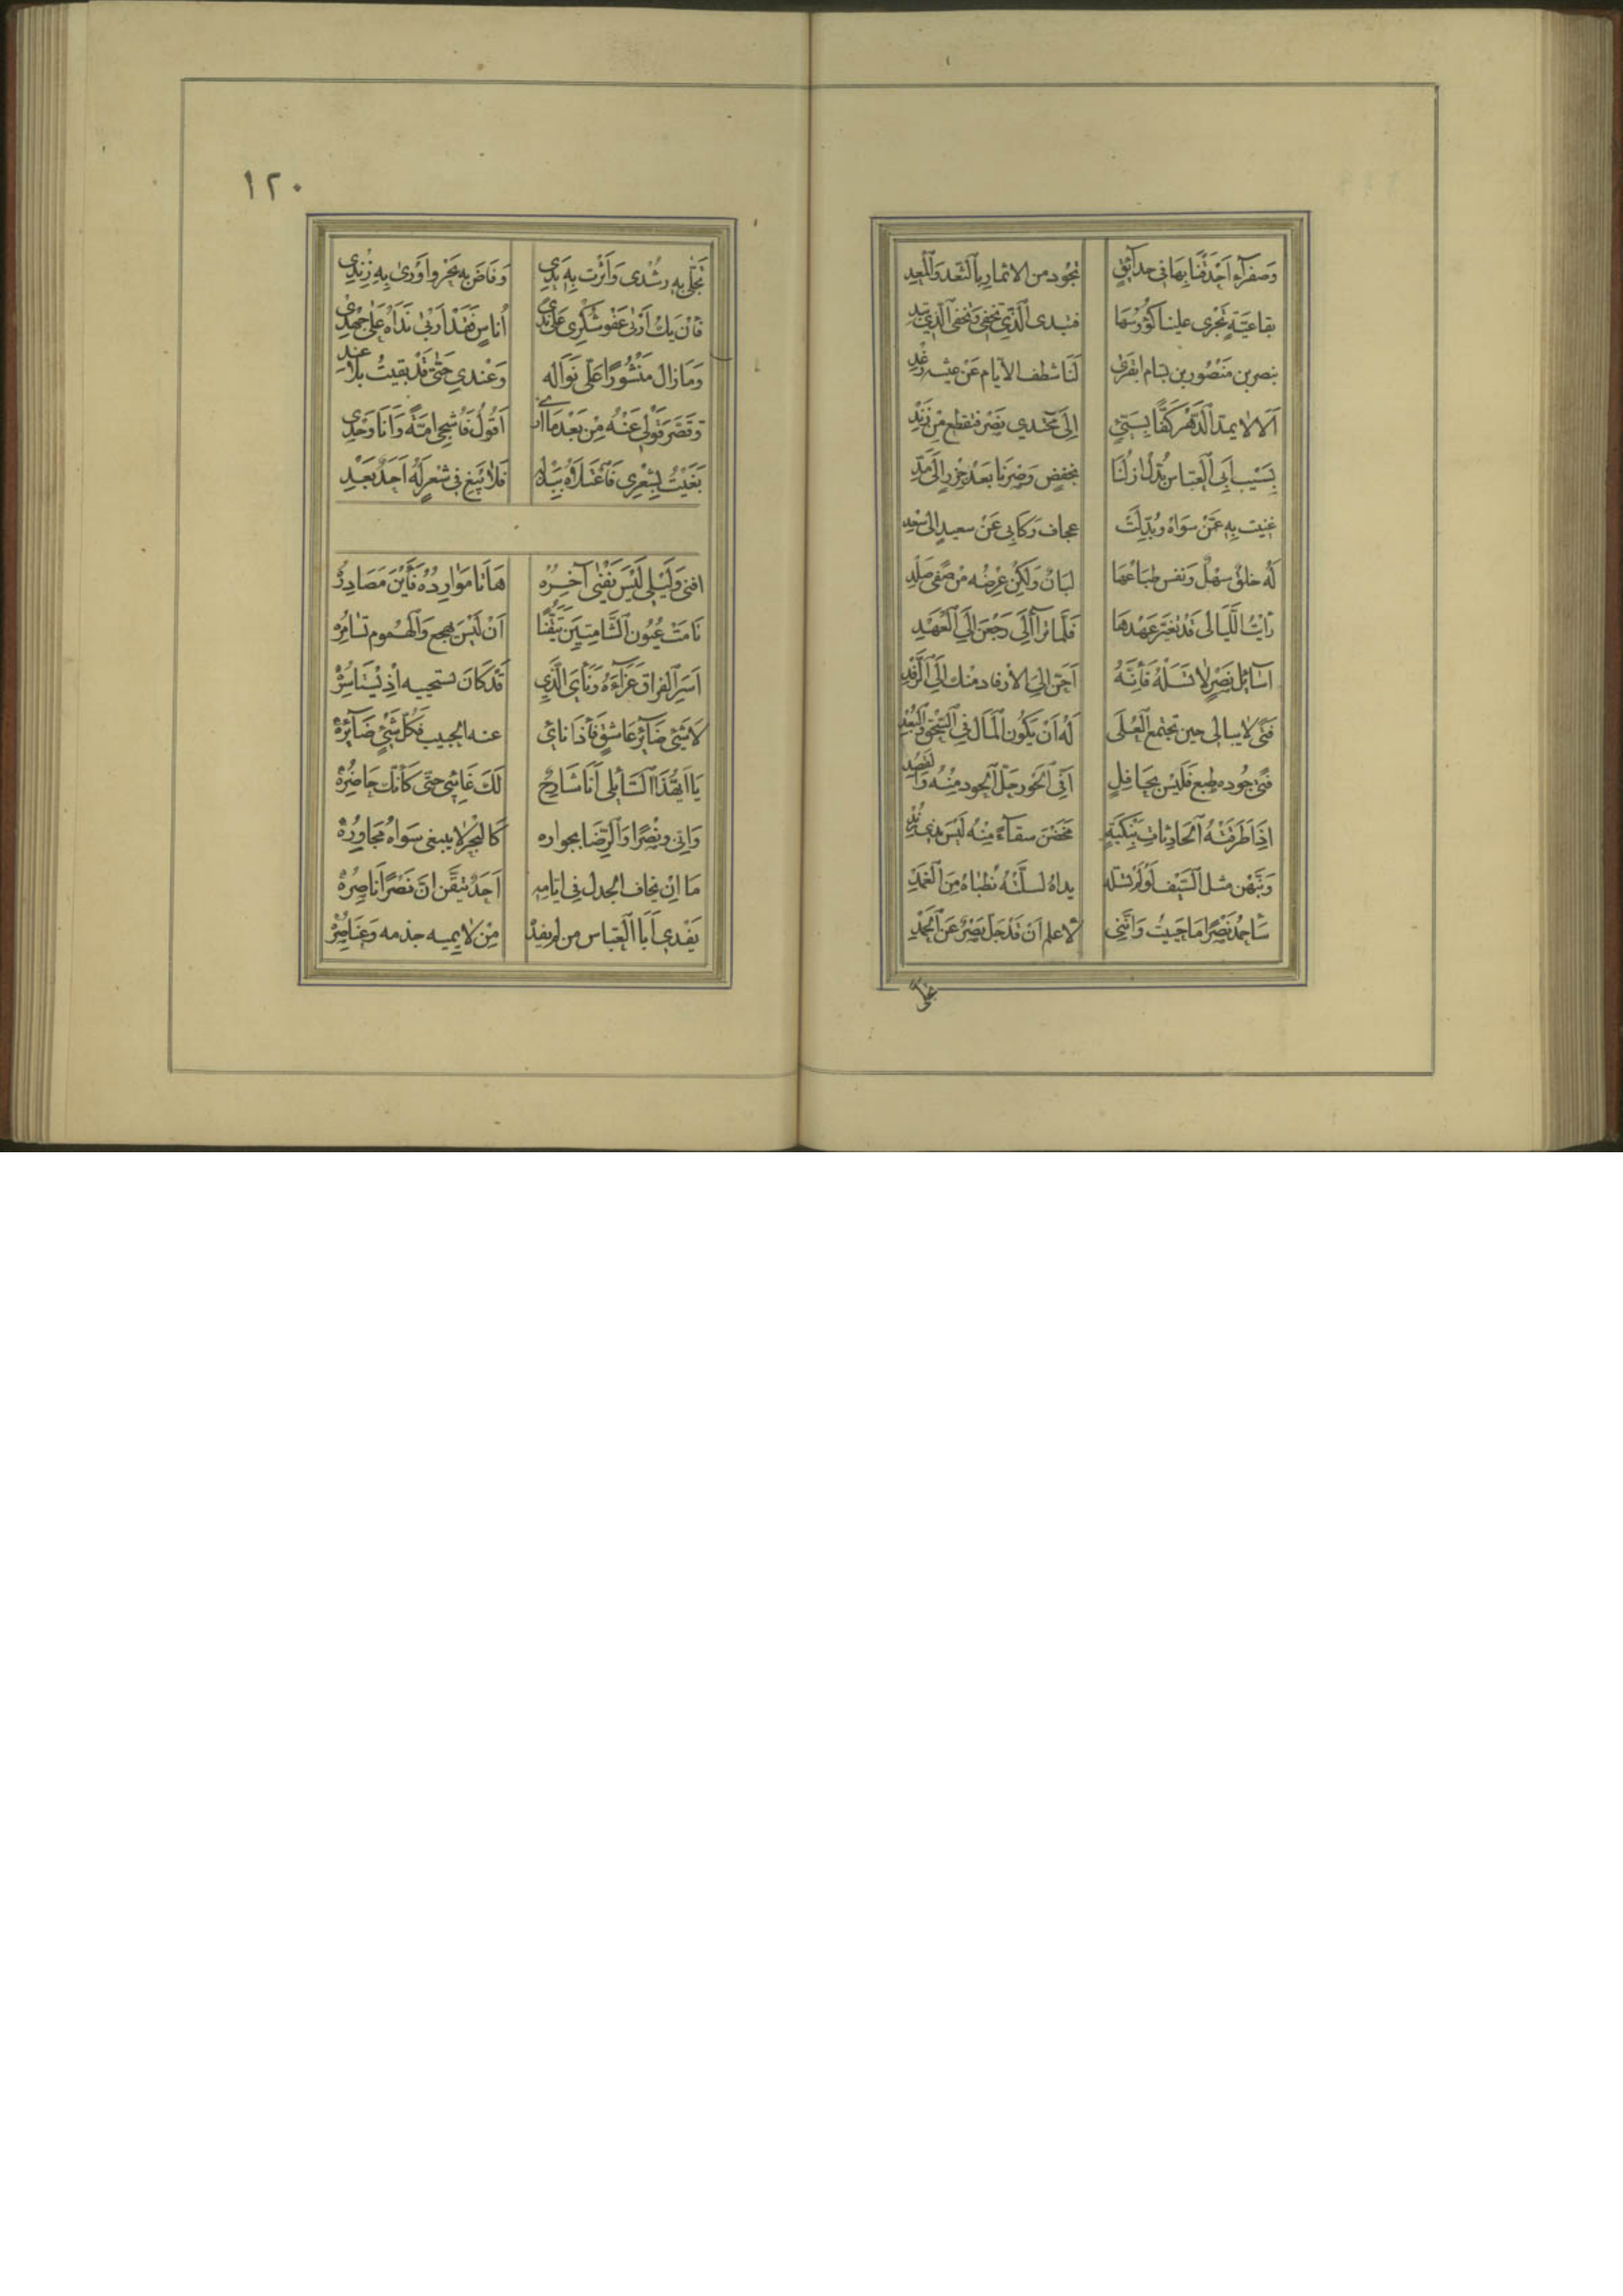 وَصَفرآءِ اَحْدَقْنَا بِهَا فى حدآئقٍ تجُود من الاثمار بِالثَّعد وَالْمَعدِ
بقاعيّةٍ تَجْرى علينا كؤُوسُهَا فتبدى الَّذِي تخفى وَتخفى الَّذي تبدِ
بنصر بن مَنصُور بن بسام انفَرىٰ لَنَا شظف الايّام عَنْ عيشهِ رغْدِ
اَلَا لا يمدّ الدَّهْر كَفًّا بسَيّئٍ اِلىَ مجْتدي نَصْرٍ فتقطع مِنْ زَنْدِ
بِسَيْب اَبِى العَبّاس بُدّل ازلُنَا بخفضٍ وَصِرنَا بَعْد جزْرٍ الىَ مَدِّ
غنيت بِه عمَّنْ سَوَاه وبُدّلَتْ عجاف ركَابى عَنْ سعيدٍ الىٰ سعْدِ
لَهُ خلقٌ سَهْلٌ وَنفس طِبَاعُهَا لَيَانٌ وَلكِنْ عِرْضُه مِنْ صَفى صَلْدِ
رَأَيْتُ اللَّيَالى قَدْ تغيّر عَهْدهَا فَلَمّا ترآ الَى رَجَعْنَ اِلىَ الْعَهْدِ
اسَآئِل نَصْرٍ لا تَسَلهُ فَانَّهُ اَحَنُّ الىَ الارفاد منْك اِلىَ الرَّفْدِ
فَتىً لا يبالى حين تجتمع الْعُلىَ لَهُ اَنْ يَكُون الْمَال فى السُّحْق وَالْبُعْدِ
فَتىً جُوده طبع فَلَيْسَ بِحَافِلٍ اَفى الْجَور حَلّ الجُود مِنْهُ وَالْقَصْدِ
اِذَا طَرَقَتْهُ الْحَادِثَات بِنَكبَةٍ مَخَضْنَ سقآءً مِنْهُ لَيْسَ بذى زُبْدِ
وَنَبَّهْن مثل السَّيْف لَوْ لَمْ تسَله يداهُ لسلّتْهُ ظباهُ مِنَ الْغِمدِ
سَاحْمَدُ نَصْرًا مَا حَييتُ وَانَّنى لاعلم اَنْ قَدْ جَلّ نَصْرٌ عَن الْحَمدِ
تجلّى
١٢٠
تجَلّى بِه رشْدى وَاَثرَت بِهِ يَدِى وَفَاضَ بِه بَحْر وَاَوْرىٰ بِهِ زِنْدِى
فاْن يَكُ اَرْبىٰ عَفْو شكْرى عَلىٰ نَدىٰ أُناسٍ فَقَدْ اَرْبىٰ نَدَاهُ عَلىٰ جُهْدِى
وَمَا زال مَنْشُورًا عَلىَّ نَوَالُه وَعِندي حَتّىٰ قَدْ بَقيتُ بلا عندِ
وَقَصَّرَ قَوْلى عَنْهُ مِنْ بَعْدِ مَا اَرىٰ اَقُولُ فَاُشْجِى امّةً وَاَنَا وَحْدِى
بَغَيْتُ بشِعْرى فَاعْتلَاهُ بِبَذْلِهِ فَلا يَبْغِ فى شعْرٍ لَهُ اَحَدٌ بَعْدِ
افنى وَلَيْلى لَيْسَ يَفْنىٰ آخِرُه هَاتَا مَوَارِدُه فَأَيْنَ مَصَادِرُهْ
نَامَتْ عُيُون الشَّامتِين تيَقُّنًا اَنْ لَيْسَ يهجع وَالْهُموم تسَامِرُه
اَسَرَ الْفراق عَزَآءَهُ وَنأىَ الَّذي قَدْ كَانَ يستحييه اِذْ يَسْتَاسِرُهْ
لا شَىْءَ ضَآئرُ عَاشقٍ فَاْذَا نَاىٰ عنه الحبيب فَكُلُّ شَيْءٍ ضَآئِرُهْ
يَا اَيُّهذَا السّآئلى اَنَا شَارِحٌ لَكَ غَائِبى حتّى كَاَنّك حَاضِرُهْ
وَانّى وَنَصْرًا وَالرِّضَا بجواره كَالْبَحْر لا يبغى سَوَاهُ مجَاوِرُهْ
مَا اِنْ يخاف الخذل فى ايّامِه اَحَدٌ تيَقَّن انَّ نَصْرًا نَاصِرُهْ
يَفْدى اَبَا الْعَبّاس مَن لم يفدهْ مِنْ لايميه جذمه وَعنَاصِرُهْ